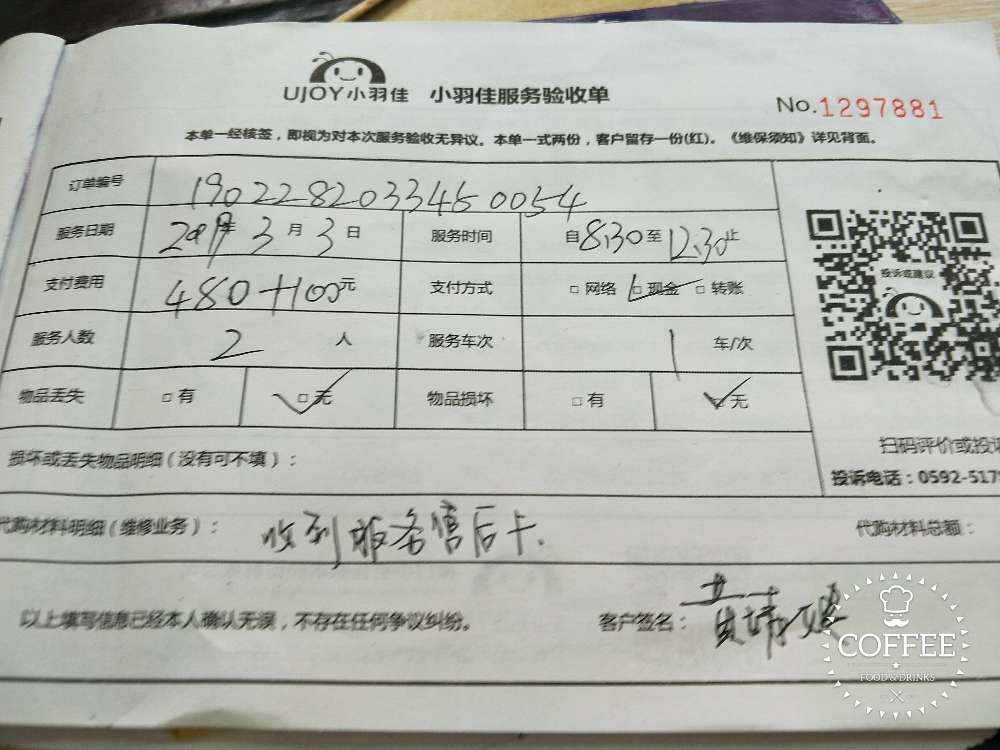 UJOY小羽佳 小羽佳服务验收单
No.1297881
本单一经核签，即视为对本次服务验收无异议。本单一式两份，客户留存一份(红)。《维保须知》详见背面。
订单编号 1902282033450054
服务日期 2019年3月3日 服务时间 自8:30至12:30止
投诉或建议
支付费用 480+100元 支付方式 □网络 □现金 □转账
服务人数 2人 服务车次 1车/次
物品丢失 □有 □无 物品损坏 □有 □无
损坏或丢失物品明细（没有可不填）：
扫码评价或投诉
投诉电话：0592-517
代购材料明细（维修业务）： 收到服务售后卡. 代购材料总额：
以上填写信息已经本人确认无误，不存在任何争议纠纷。 客户签名：
COFFEE
FOOD & DRINKS